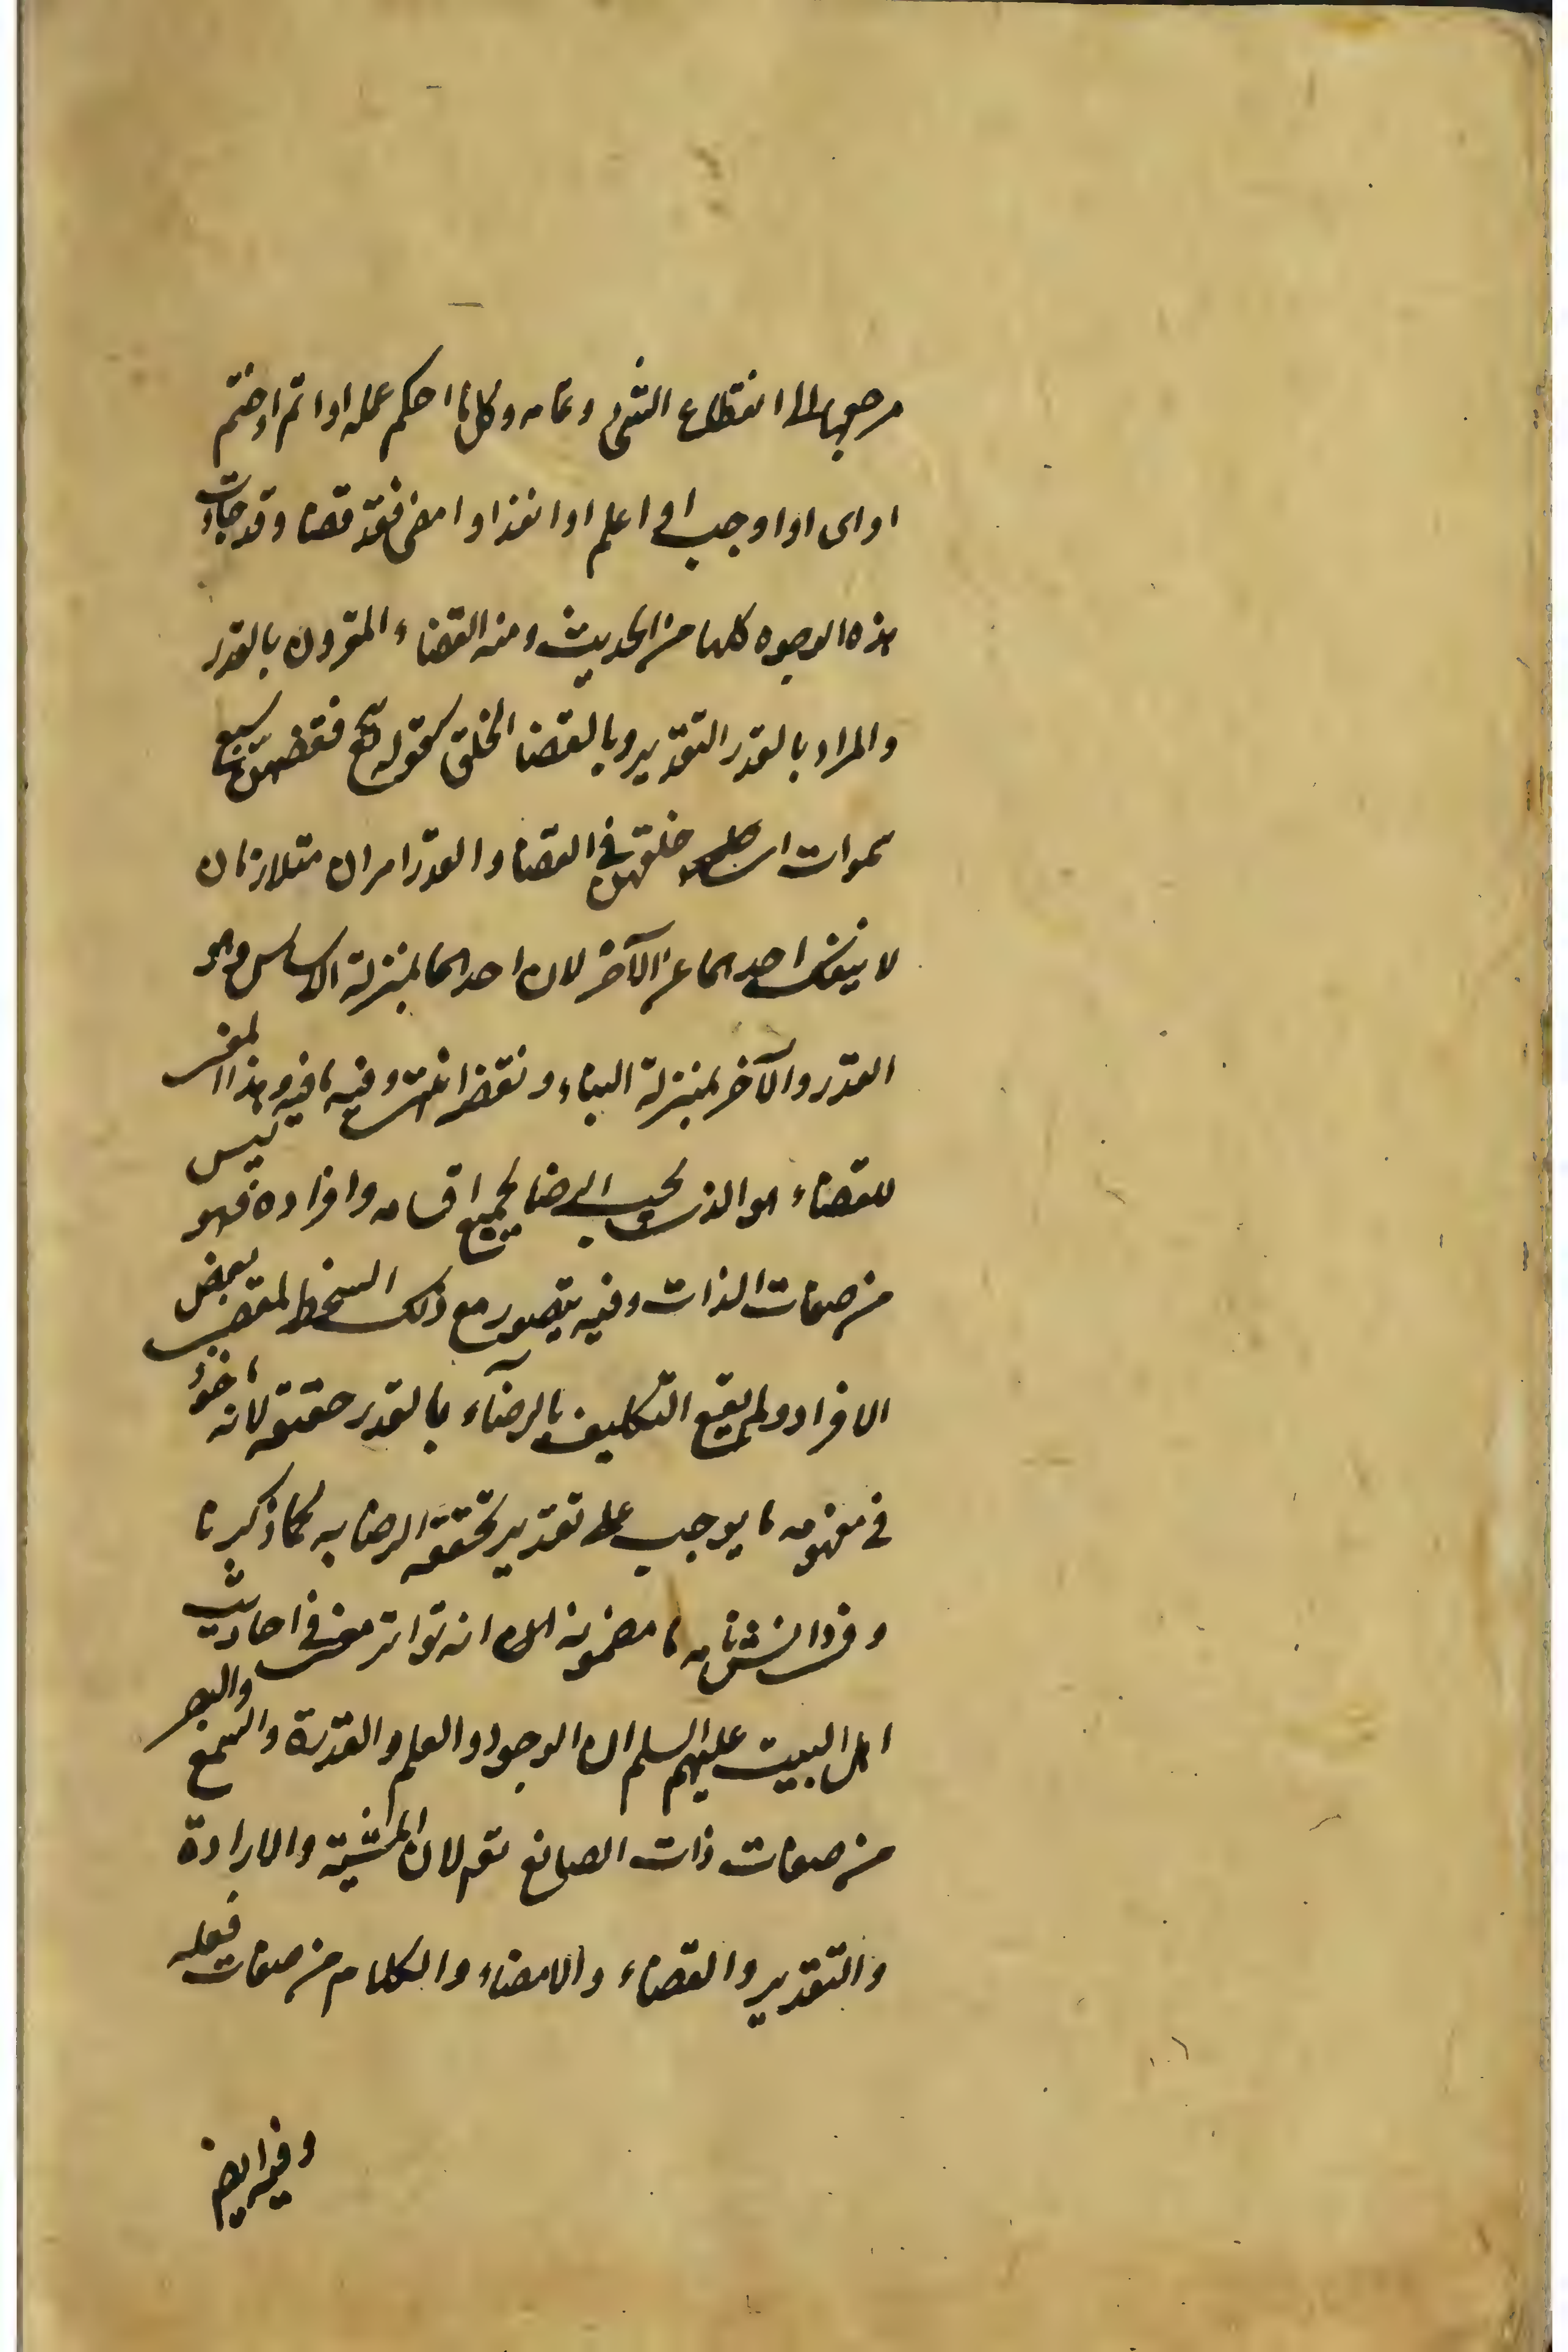 مرجعها الى انقطاع الشئ وتمامه وكل ما احكم عمله او اتم او ختم
او ادى او اوجب او اعلم او انفذ او امضى فقد قضا وقد جاءت
هذه الوجوه كلها من الحديث ومنه القضاء المقرون بالقدر
والمراد بالقدر التقدير وبالقضا الخلق كقوله تع فقضيهن سبع
سموات اى خلقهن فى القضا والقدر امران متلازمان
لا ينفك احدهما عن الآخر لان احدهما بمنزلة الاساس وهو
القدر والآخر بمنزلة البناء ونقضه انتهى وفيه ما فيه وهذا المعنى
للقضاء هو الذى يجب الرضا بجميع اقسامه وافراده فهو ليس
من صفات الذات وفيه يتصور مع ذلك السخط لمقضى بعض
الافراد ولم يقع التكليف بالرضآء بالقدر حقيقة لانه ماخوذ
فى مفهومه ما يوجب على تقدير تحققه الرضا به كما ذكرنا
وفى دانشنامه ما مضمونه ان انه تواتر معنى فى احاديث
اهل البيت عليهم السلم ان الوجود والعلم والقدرة والسمع والبصر
من صفات ذات الصانع تع لان المشية والارادة
والتقدير والقضاء والامضاء والكلام من صفات فعله
وفيه ايض